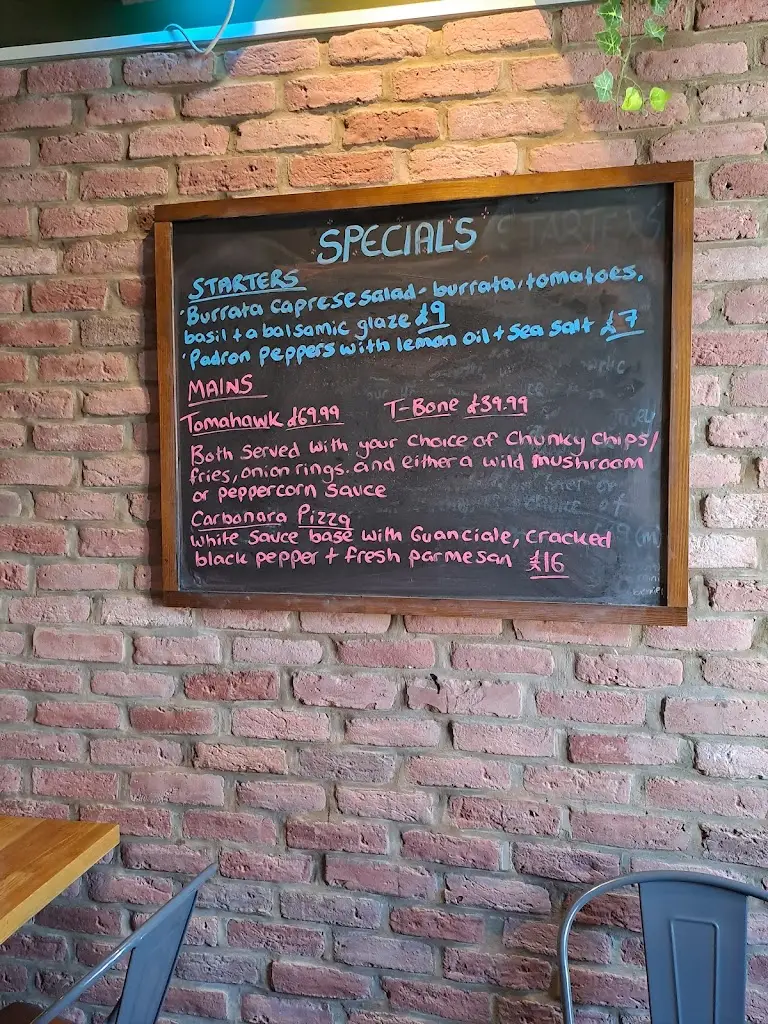 SPECIALS
STARTERS
'Burrata caprese salad - burrata, tomatoes,
basil + a balsamic glaze £9
'Padron peppers with lemon oil + sea salt £7
MAINS
Tomahawk £69.99 T-Bone £39.99
Both served with your choice of chunky chips/
fries, onion rings. and either a wild mushroom
or peppercorn sauce
Carbonara Pizza
White sauce base with Guanciale, cracked
black pepper + fresh parmesan £16
STARTERS